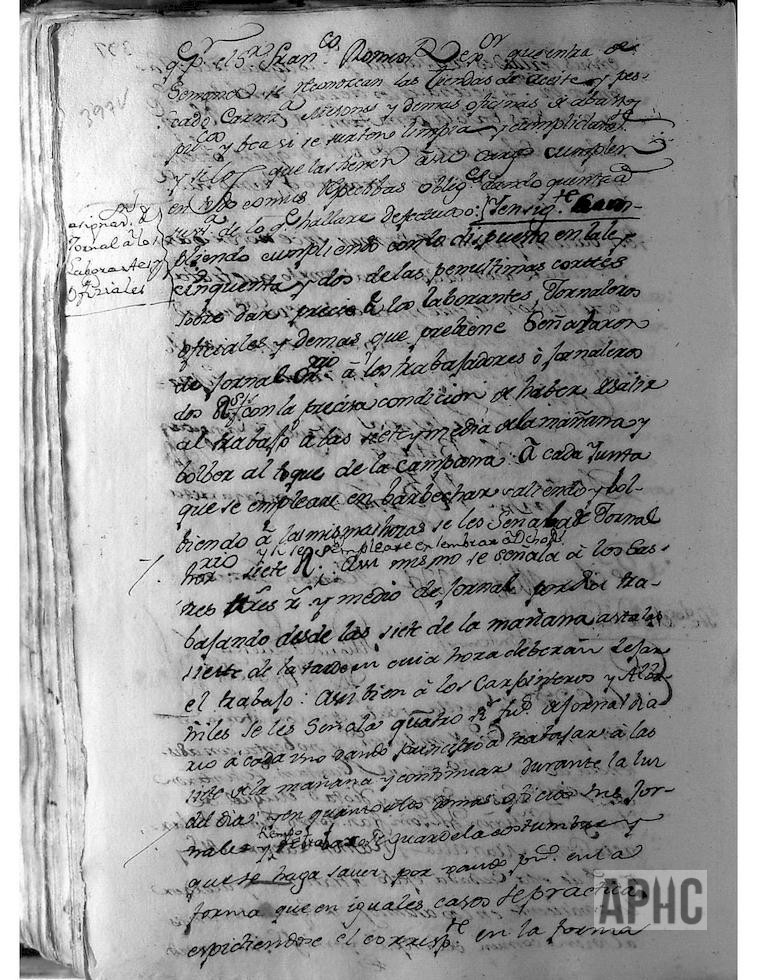 397
397V
q.e p.r el S.r Fran.co Romeo R.Dor que entra de
Semana se reconozcan las tiendas de aceite y pes-
cado, Carniz.a Mesones y demas oficinas de abasto
pu.co y vea si se surten limpia y cumplidam.te
y si los que las tienen à su cargo cumplen
en todo con sus respectibas oblig.es dando quenta
de lo q.e hallare defectuoso:
asignar. de
Jornal à los
Laborantes y
Oficiales
pliendo cumpliendo con lo dispuesto en la ley
cinquenta y dos de las penultimas cortes
sobre dar precio à los laborantes, Jornaleros
oficiales y demas que prebiene Señalaron
de Jornal à los trabajadores ò jornaleros
dos R.s con la precisa condicion de haber de salir
al trabajo à las siete y media de la mañana y
bolber al toque de la Campana: À cada Junta
que se empleare en barbechar saliendo y bol-
biendo à las mismas horas se les Señala de Jornal
y si se empleare en sembrar à ocho r.s
siete R.s: Asi mismo se señala à los
tres r.s y medio de Jornal por dia tra-
bajando desde las siete de la mañana asta las
siete de la tarde en cuia hora deberàn dejar
el trabajo: Asi bien à los Carpinteros y Alba-
ñiles se les Señala quatro r.s de jornal dia
rio a cada uno dando principio à trabajar à las
siete de la mañana y continuar durante la luz
del dia: y en quanto à los demas oficios sus Jor-
nales y tiempo de trabajo se guarde la costumbre y
que se haga saver por vando pu.co en la
forma que en iguales casos se practica
espidiendose el corresp.te en la forma
APHC